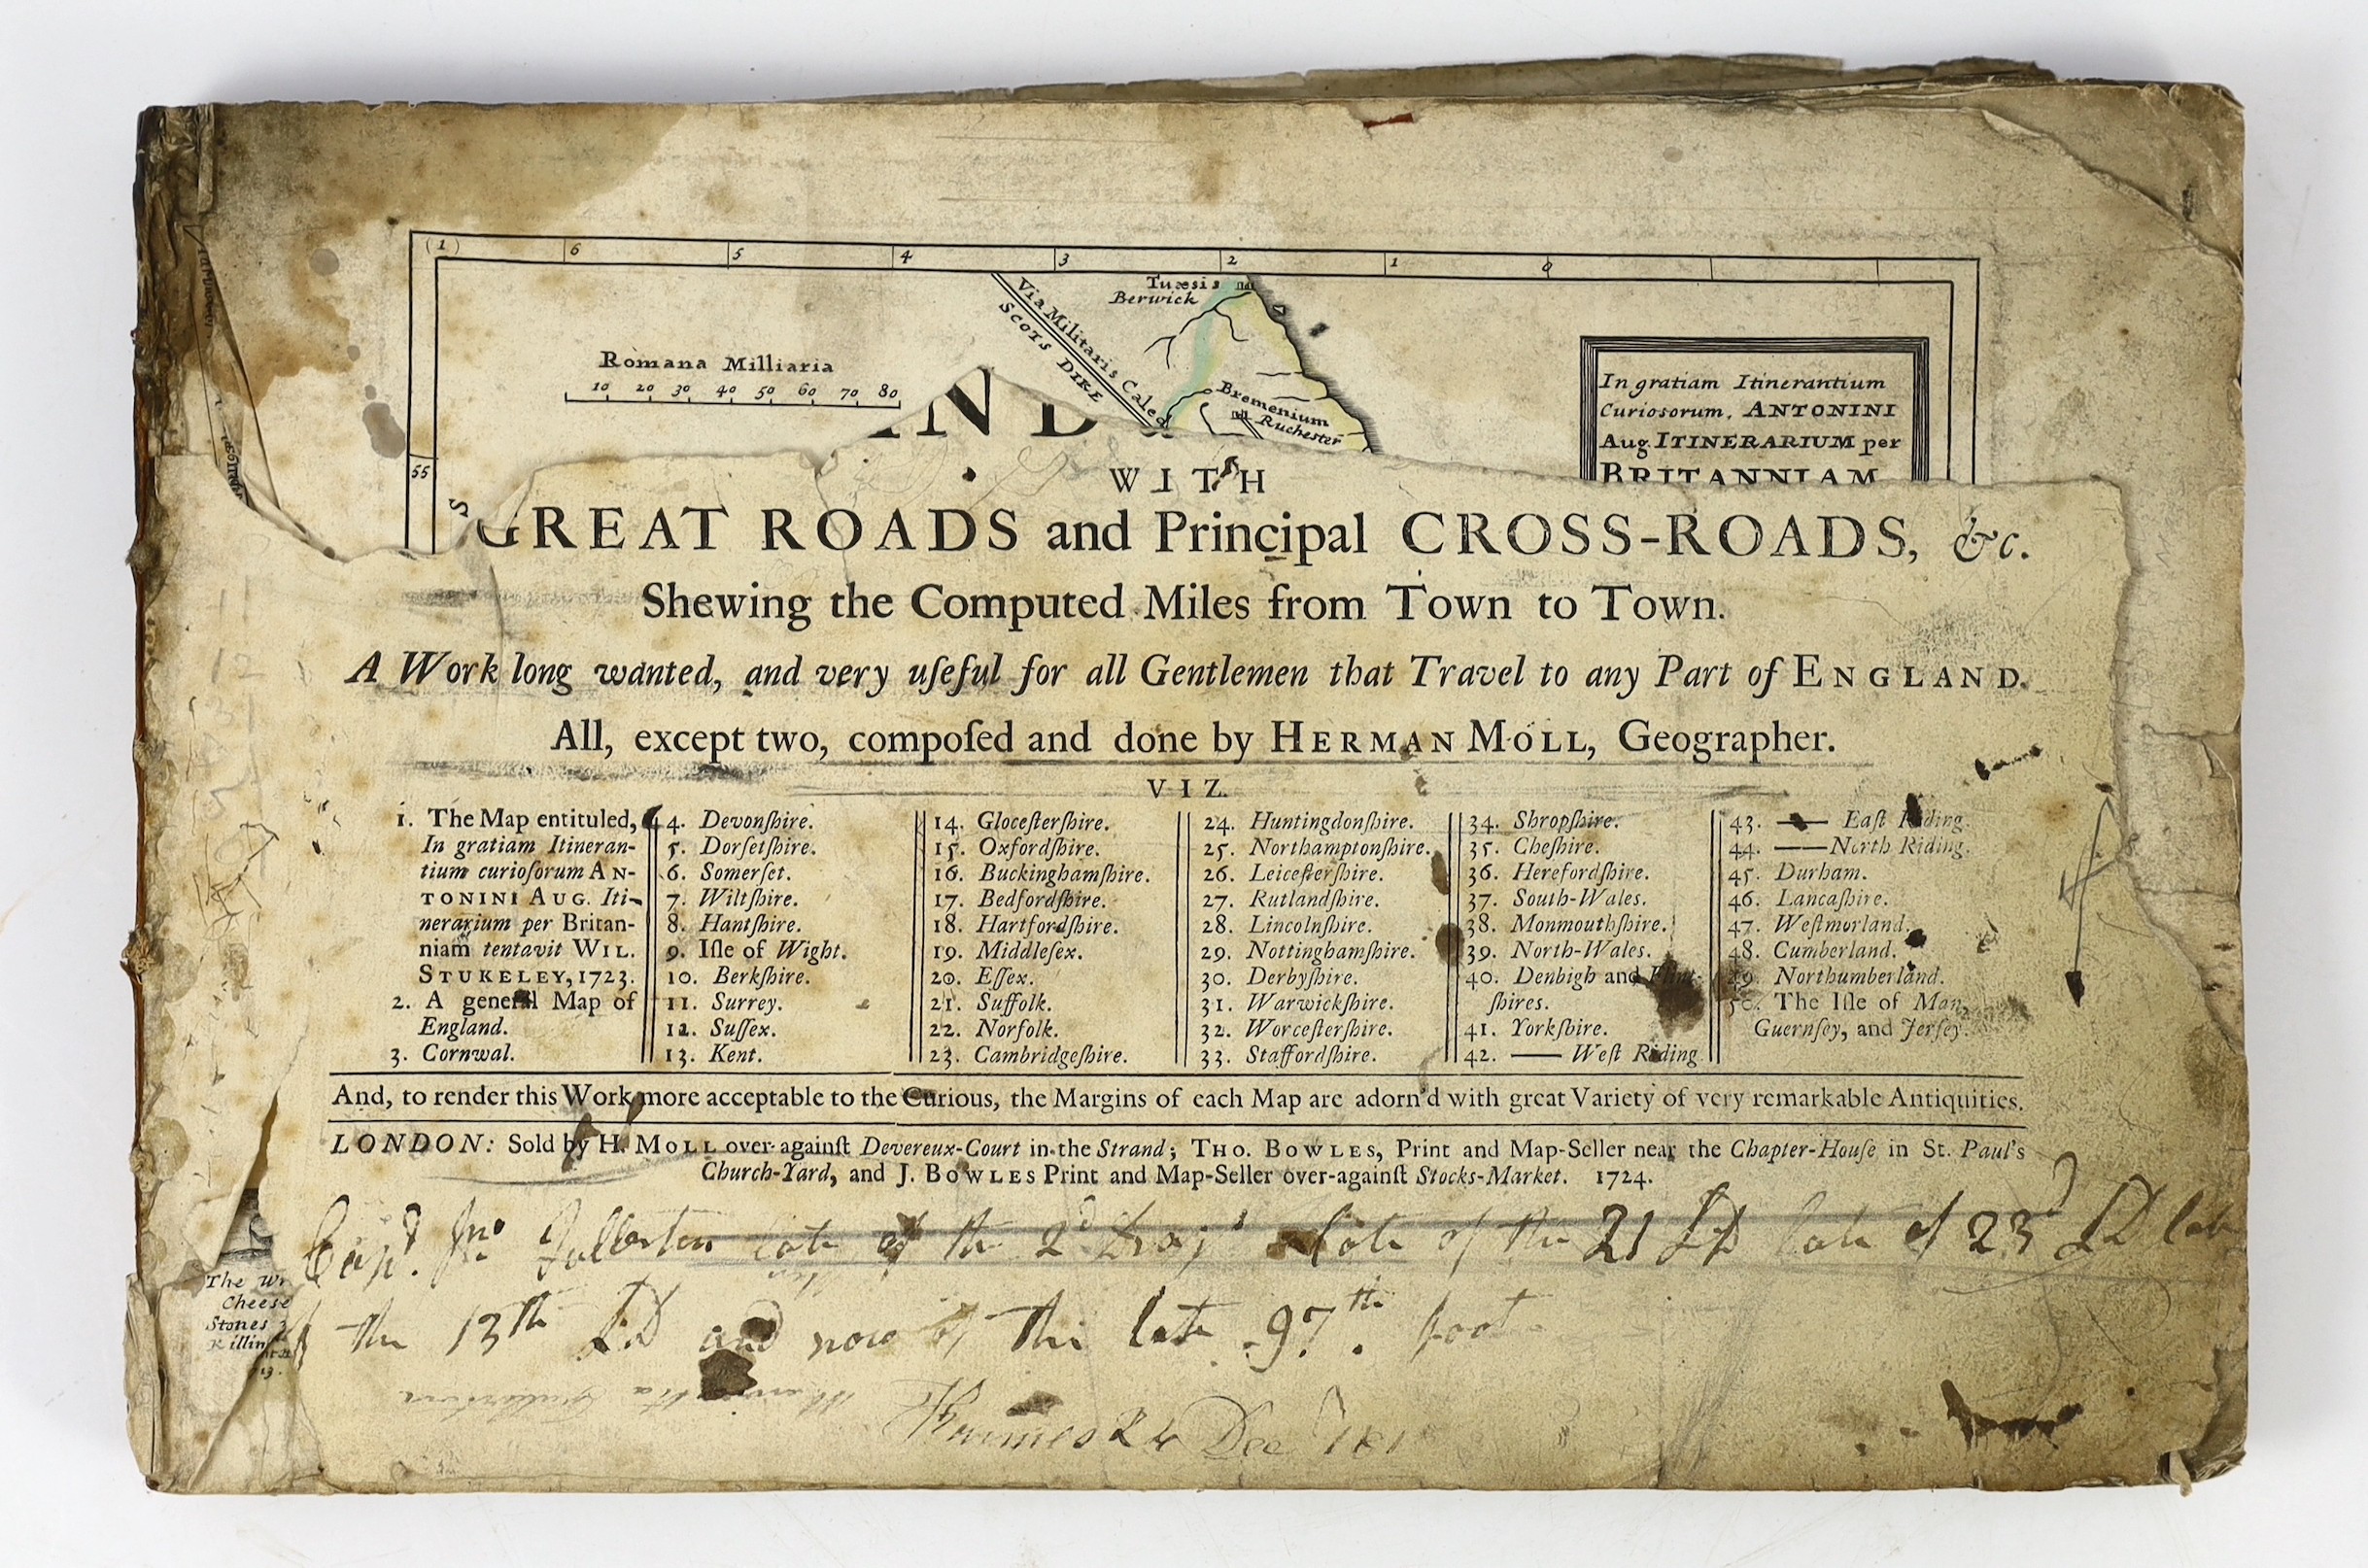 (1) 6 5 4 3 2 1 0
Tuæsis
Berwick
Via Militaris Caled
Scots Dike
Romana Milliaria
10 20 30 40 50 60 70 80
Bremenium
Ruchester
In gratiam Itinerantium
Curiosorum, ANTONINI
Aug. ITINERARIUM per
BRITANNIAM
55
WITH
GREAT ROADS and Principal CROSS-ROADS, &c.
Shewing the Computed Miles from Town to Town.
A Work long wanted, and very uſeful for all Gentlemen that Travel to any Part of ENGLAND.
All, except two, compoſed and done by HERMAN MOLL, Geographer.
VIZ.
1. The Map entituled,
In gratiam Itineran-
tium curioſorum AN-
TONINI AUG. Iti-
nerarium per Britan-
niam tentavit WIL.
STUKELEY, 1723.
2. A general Map of
England.
3. Cornwal.
4. Devonſhire.
5. Dorſetſhire.
6. Somerſet.
7. Wiltſhire.
8. Hantſhire.
9. Iſle of Wight.
10. Berkſhire.
11. Surrey.
12. Suſſex.
13. Kent.
14. Gloceſterſhire.
15. Oxfordſhire.
16. Buckinghamſhire.
17. Bedfordſhire.
18. Hartfordſhire.
19. Middleſex.
20. Eſſex.
21. Suffolk.
22. Norfolk.
23. Cambridgeſhire.
24. Huntingdonſhire.
25. Northamptonſhire.
26. Leiceſterſhire.
27. Rutlandſhire.
28. Lincolnſhire.
29. Nottinghamſhire.
30. Derbyſhire.
31. Warwickſhire.
32. Worceſterſhire.
33. Staffordſhire.
34. Shropſhire.
35. Cheſhire.
36. Herefordſhire.
37. South-Wales.
38. Monmouthſhire.
39. North-Wales.
40. Denbigh and Flint-
ſhires.
41. Yorkſhire.
42. —— Weſt Riding
43. —— Eaſt Riding.
44. —— North Riding.
45. Durham.
46. Lancaſhire.
47. Weſtmorland.
48. Cumberland.
49. Northumberland.
50. The Iſle of Man,
Guernſey, and Jerſey.
And, to render this Work more acceptable to the Curious, the Margins of each Map are adorn'd with great Variety of very remarkable Antiquities.
LONDON: Sold by H. MOLL over-againſt Devereux-Court in the Strand; THO. BOWLES, Print and Map-Seller near the Chapter-Houſe in St. Paul's
Church-Yard, and J. BOWLES Print and Map-Seller over-againſt Stocks-Market. 1724.
Capt. Jno. Fullerton late of the 2d Drags late of the 21 LD late of 23d LD late
of the 13th LD and now of the late 97th foot
24 Dec
The Wr
Cheese
Stones
Killin